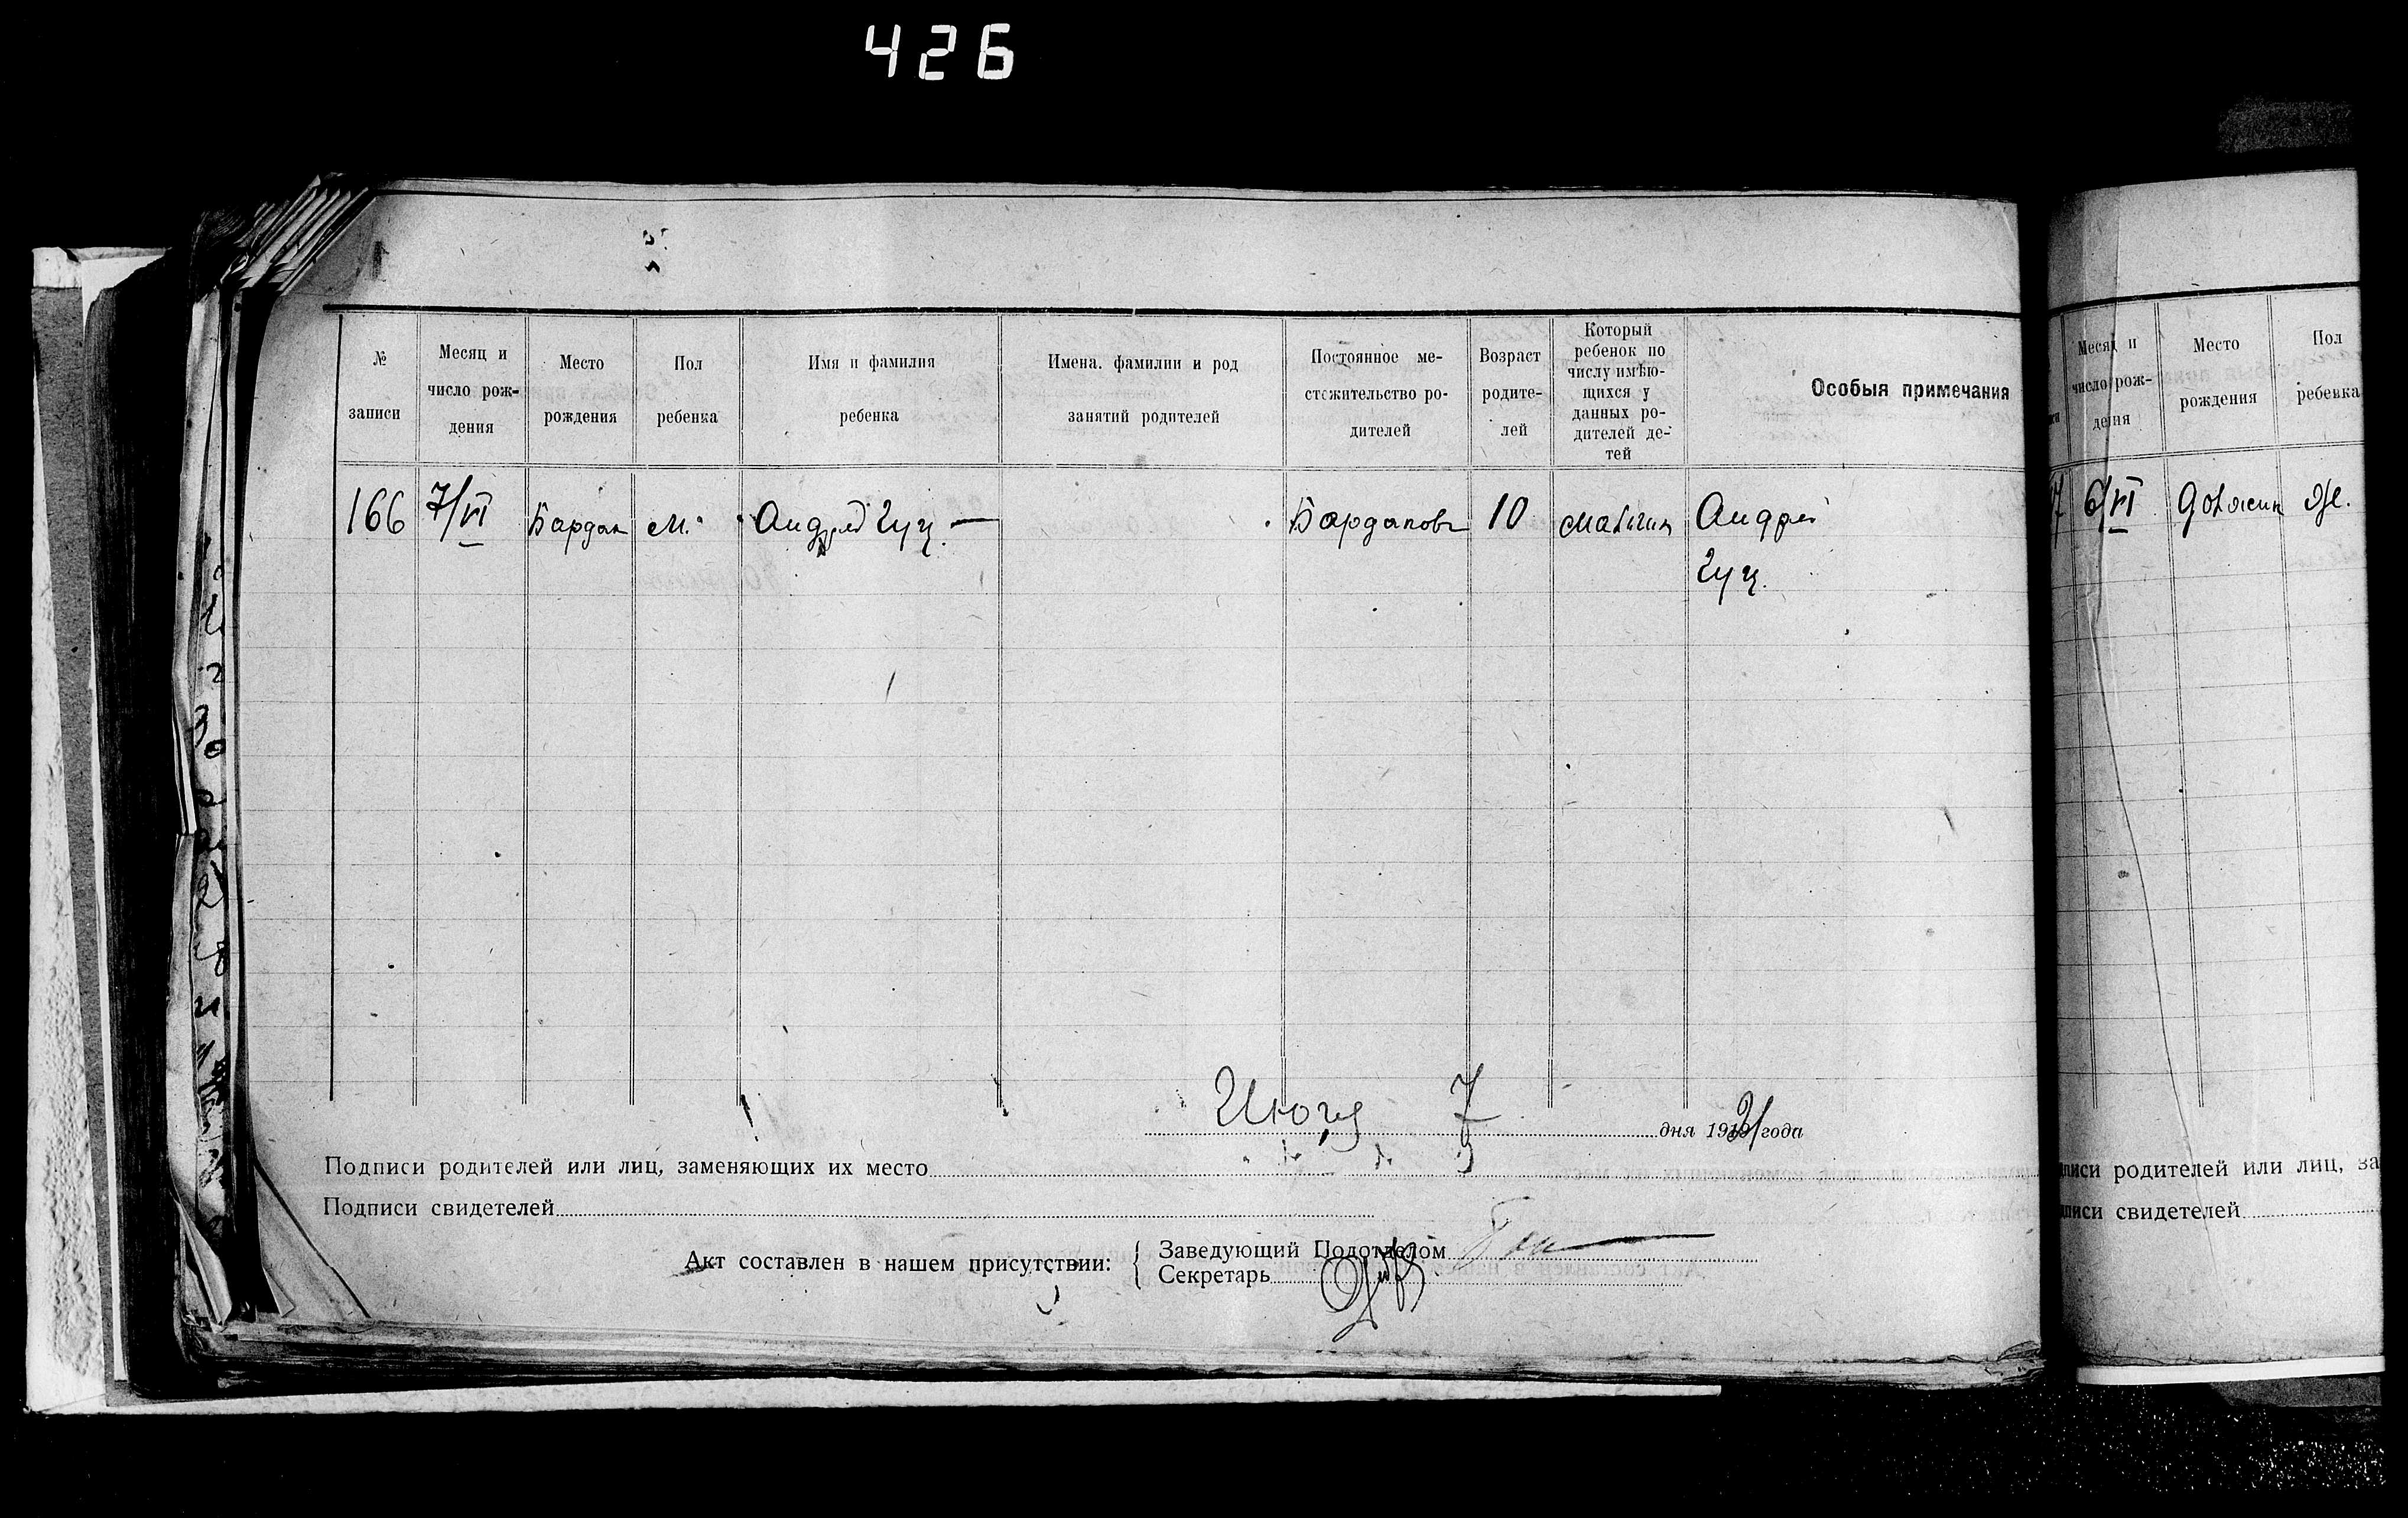 426
№ записи
Месяц и число рож-дения
Место рождения
Пол ребенка
Имя и фамилия ребенка
Имена. фамилии и род занятий родителей
Постоянное ме-стожительство ро-дителей
Возраст родите-лей
Который ребенок по числу имѣю-щихся у данных ро-дителей де-тей
Особыя примечания
166
7/VI
Бардак
м.
Андрей Гуц.
Бардаковъ
10
мальчик
Андрей
Гуц.
Июня 7 дня 1921 года
Подписи родителей или лиц, заменяющих их место
Подписи свидетелей
Акт составлен в нашем присутствии:
Заведующий Подотделом
Секретарь
Месяц и число рож-дения
Место рождения
Пол ребенка
7
6/VI
Ж.
писи родителей или лиц, за
писи свидетелей